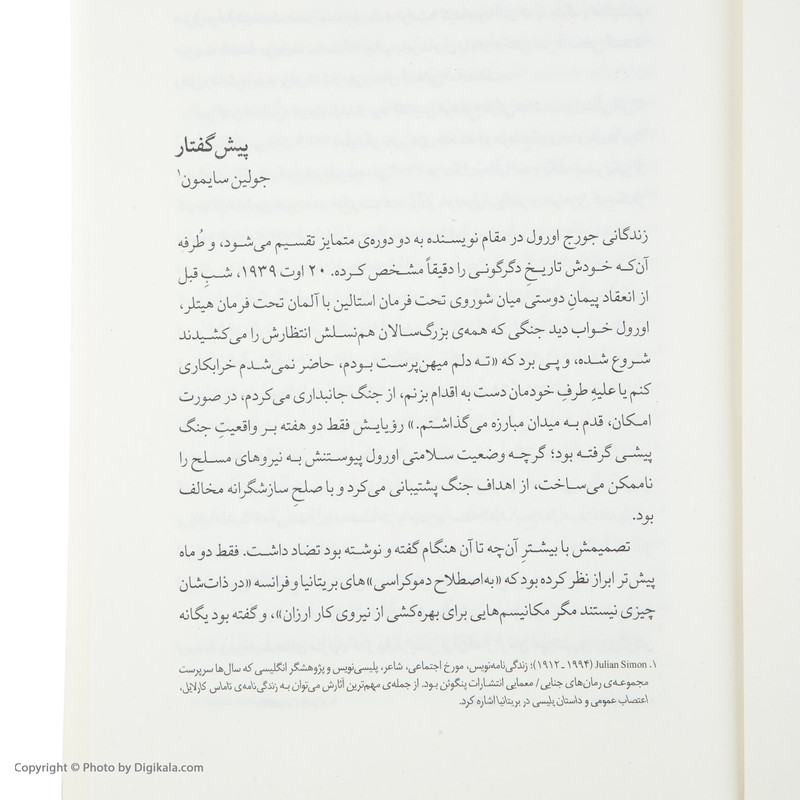 پیش‌گفتار
جولین سایمون۱
زندگانی جورج اورول در مقام نویسنده به دو دوره‌ی متمایز تقسیم می‌شود، و طُرفه
آن‌که خودش تاریخِ دگرگونی را دقیقاً مشخص کرده. ۲۰ اوت ۱۹۳۹، شبِ قبل
از انعقاد پیمانِ دوستی میان شوروی تحت فرمان استالین با آلمان تحت فرمان هیتلر،
اورول خواب دید جنگی که همه‌ی بزرگ‌سالان هم‌نسلش انتظارش را می‌کشیدند
شروع شده، و پی برد که «تـه دلم میهن‌پرست بودم، حاضر نمی‌شدم خرابکاری
کنم یا علیهِ طرفِ خودمان دست به اقدام بزنم، از جنگ جانبداری می‌کردم، در صورت
امکان، قدم به میدان مبارزه می‌گذاشتم.» رؤیایش فقط دو هفته بر واقعیتِ جنگ
پیشی گرفته بود؛ گرچه وضعیت سلامتی اورول پیوستنش به نیروهای مسلح را
ناممکن می‌ساخت، از اهداف جنگ پشتیبانی می‌کرد و با صلحِ سازشگرانه مخالف
بود.
تصمیمش با بیشترِ آن‌چه تا آن هنگام گفته و نوشته بود تضاد داشت. فقط دو ماه
پیش‌تر ابراز نظر کرده بود که «به‌اصطلاح دموکراسی»های بریتانیا و فرانسه «در ذات‌شان
چیزی نیستند مگر مکانیسم‌هایی برای بهره‌کشی از نیروی کار ارزان»، و گفته بود یگانه
۱. Julian Simon (۱۹۹۴ ـ ۱۹۱۲): زندگی‌نامه‌نویس، مورخ اجتماعی، شاعر، پلیسی‌نویس و پژوهشگر انگلیسی که سال‌ها سرپرست
مجموعه‌ی رمان‌های جنایی / معمایی انتشارات پنگوئن بود. از جمله‌ی مهم‌ترین آثارش می‌توان به زندگی‌نامه‌ی تاماس کارلایل،
اعتصاب عمومی و داستان پلیسی در بریتانیا اشاره کرد.
Copyright © Photo by Digikala.com